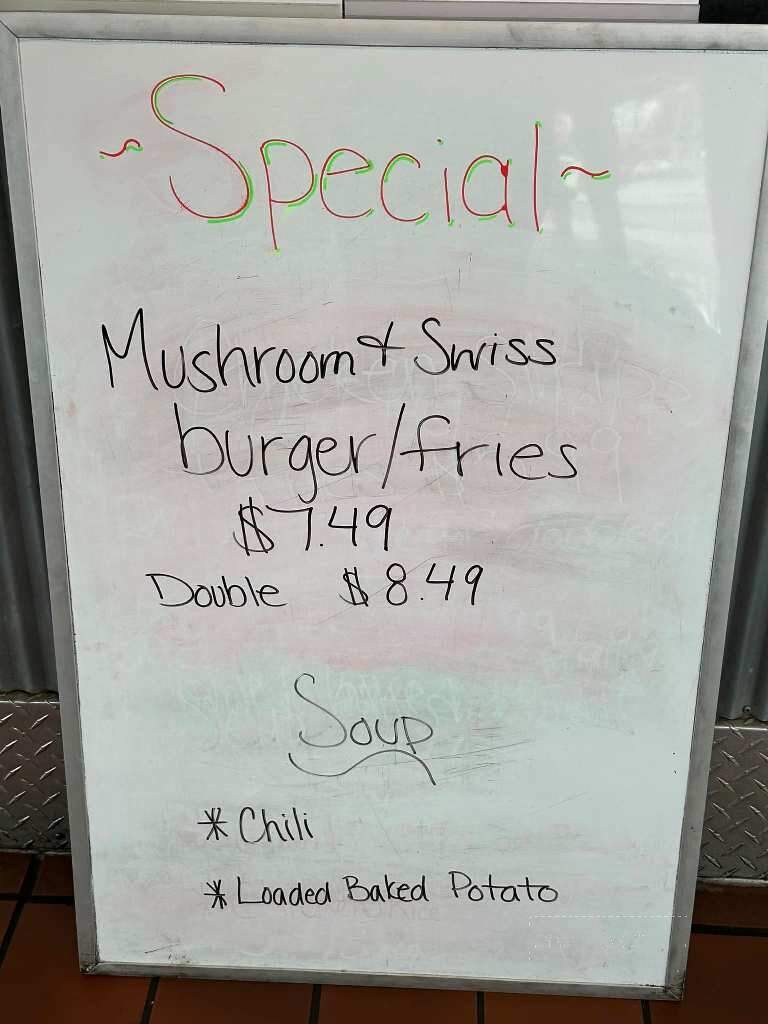 ~Special~
Mushroom & Swiss
burger/fries
$7.49
Double $8.49
Soup
* Chili
* Loaded Baked Potato